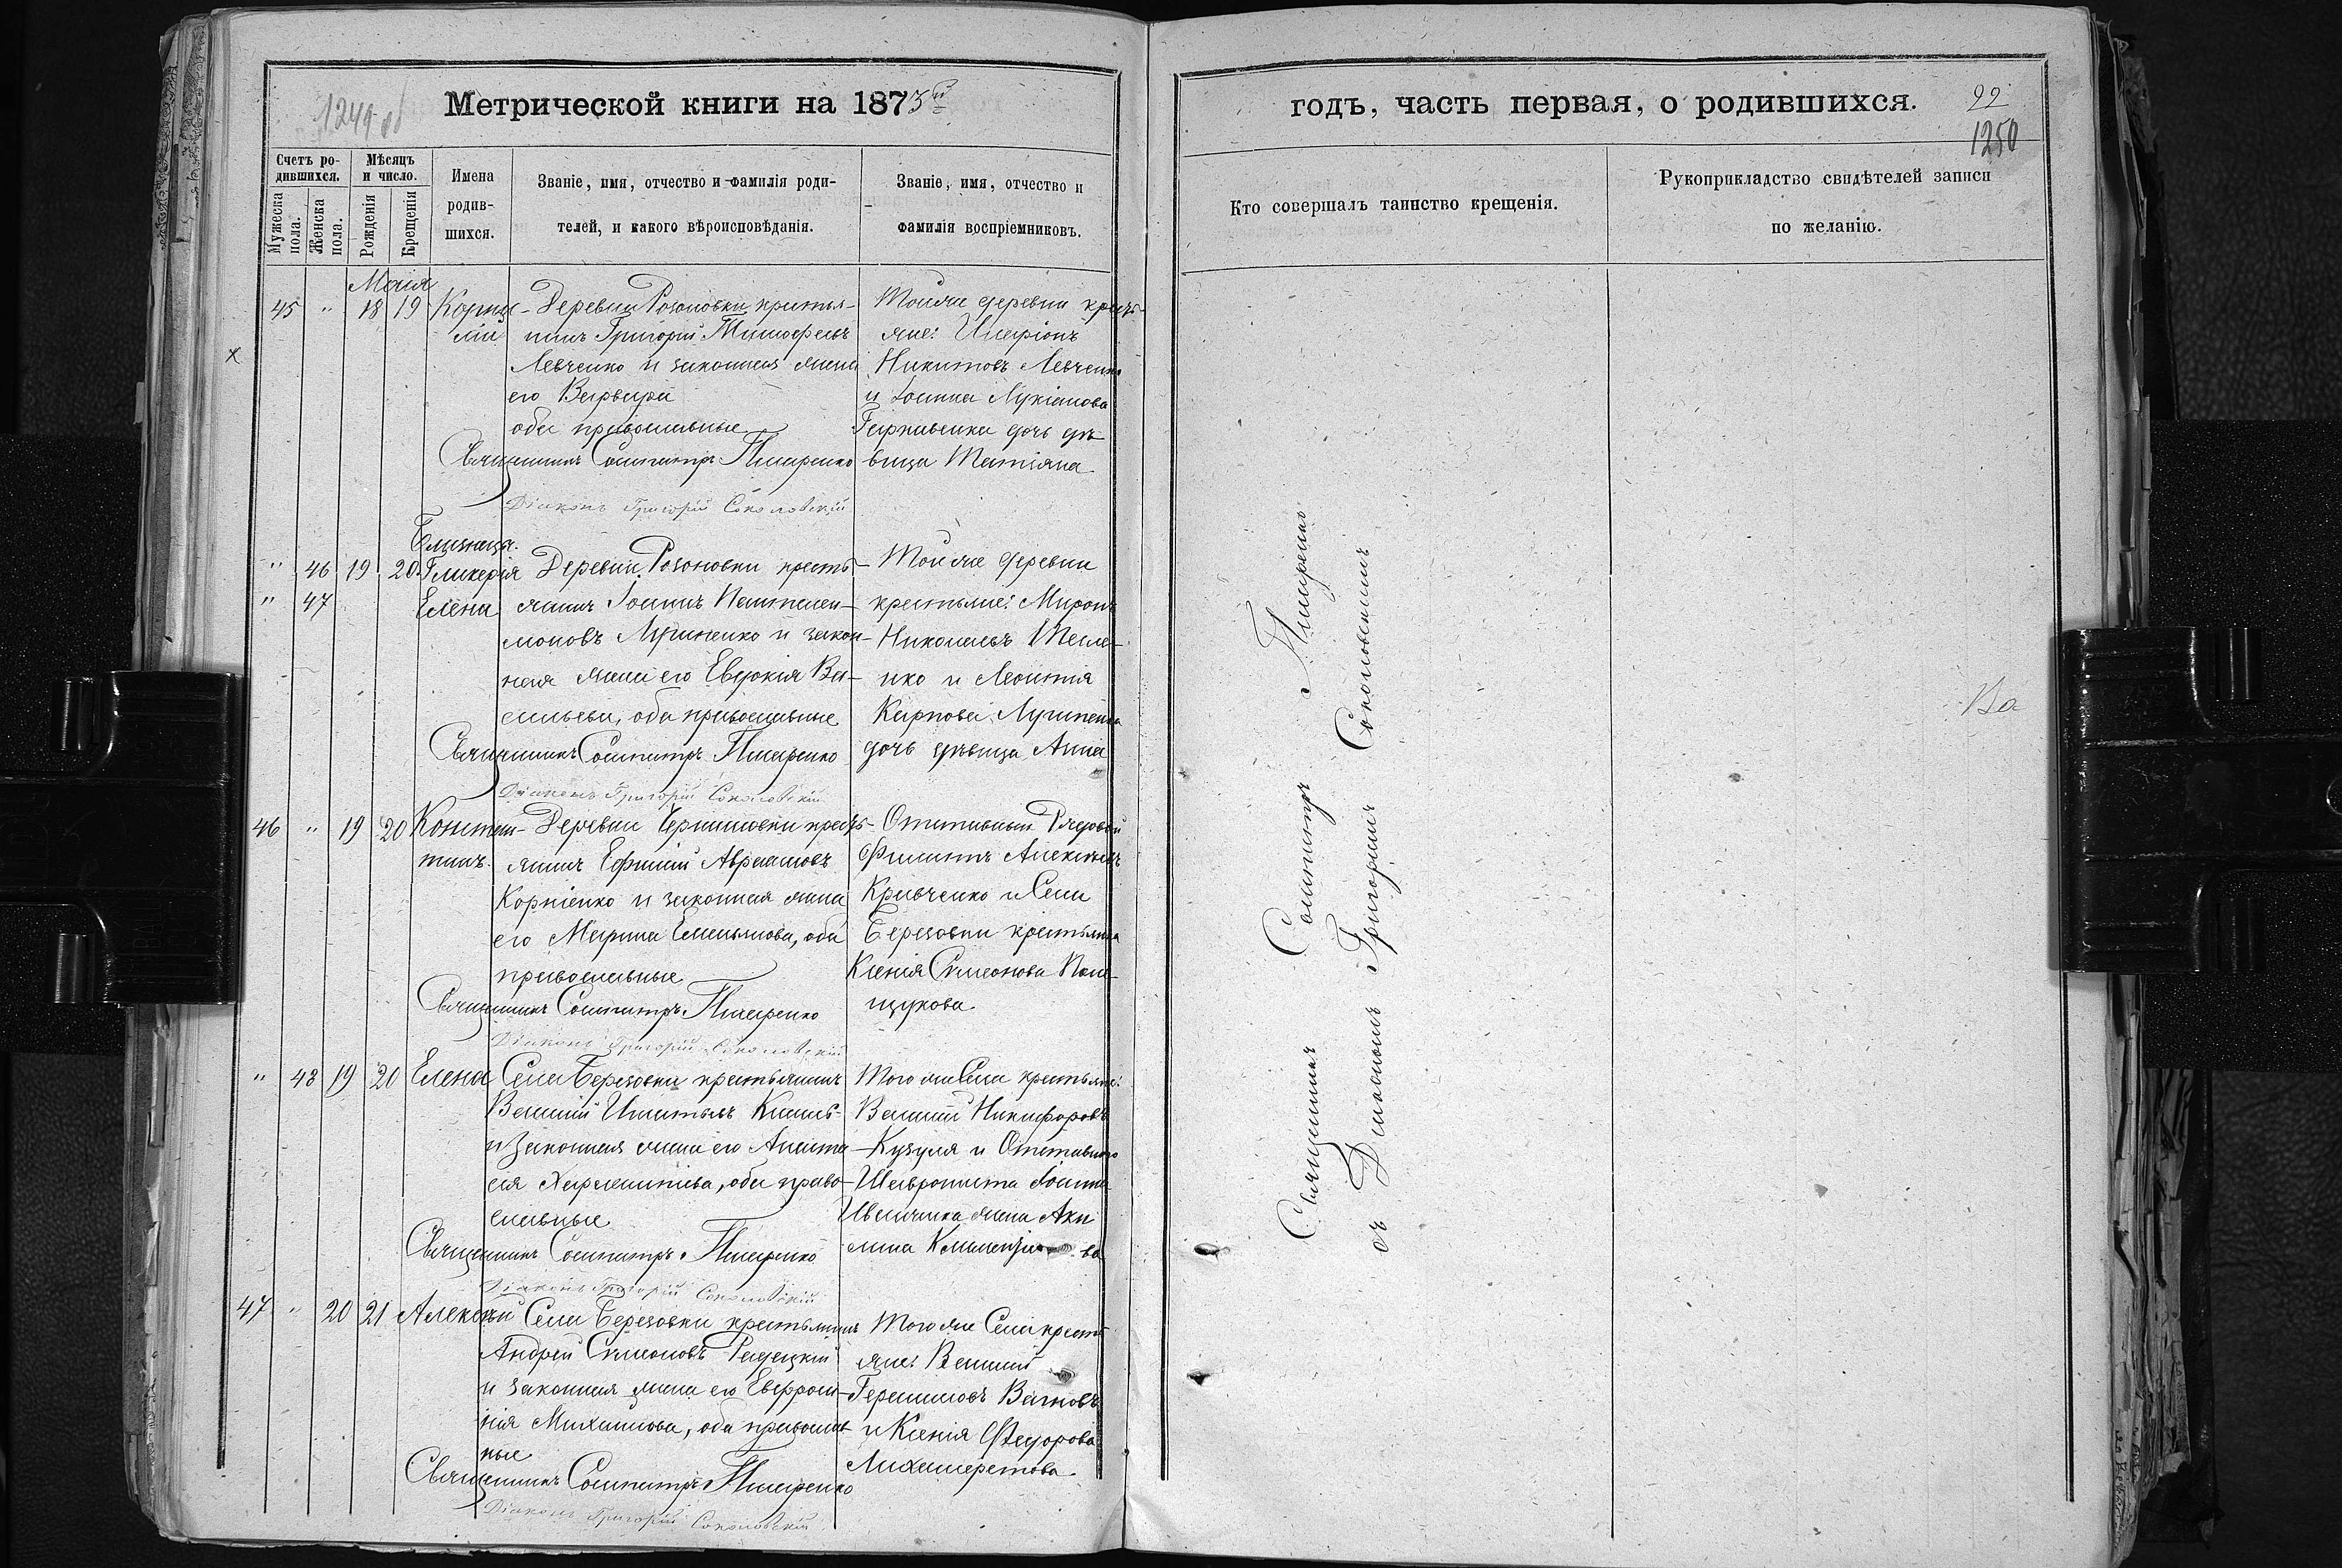 1249 об
Метрической книги на 1873й
Счетъ родившихся.
Мѣсяцъ и число.
Мужеска пола.
Женска пола.
Рожденія
Крещенія
Имена родив-
шихся.
Званіе, имя, отчество и фамилія роди-
телей, и какого вѣроисповѣданія.
Званіе, имя, отчество и
фамилія воспріемниковъ.
Маія
45 " 18 19 Корни-
лій
Деревни Розоновки крестья-
нинъ Григорій Тимофеевъ
Левченко и законная жена
его Варвара
оба православные
Священникъ Сосипатръ Писаренко
Діаконъ Григорій Соколовскій
Тойже деревни кресть-
яне: Иларіонъ
Никитовъ Левченко
и Іоанна Лукіанова
дочь дѣ-
вица Татіяна
Близнецы.
" 46 19 20 Гликерія
" 47 Елена
Деревни Розоновки кресть-
янинъ Іоаннъ Пантелеи-
моновъ и закон-
ная жена его Евдокія Ва-
сильева, оба православные
Священникъ Сосипатръ Писаренко
Діаконъ Григорій Соколовскій
Тойже деревни
крестьяне: Миронъ
Николаевъ
и Леонтія
Карпова
дочь дѣвица Анна
46 " 19 20 Констан-
тинъ.
Деревни кресть-
янинъ Ефимій Авраамовъ
Корніенко и законная жена
его Марина Емельянова, оба
православные
Священникъ Сосипатръ Писаренко
Діаконъ Григорій Соколовскій
Отставный Рядовой
Филиппъ Алексѣевъ
Кравченко и Села
Березовки крестьянка
Ксенія Симеонова Поли-
щукова
" 48 19 20 Елена
Села Березовки крестьянинъ
Василій Игнатьевъ
и Законная жена его Анаста-
сія оба право-
славные
Священникъ Сосипатръ Писаренко
Діаконъ Григорій Соколовскій
Того же Села крестьяне:
Василій Никифоровъ
Кузуля и Отставного
Іоанна
жена Аки-
лина
47 " 20 21 Алексѣй
Села Березовки крестьянинъ
Андрей Симеоновъ Радецкій
и законная жена его Евфроси-
нія Михаилова, оба православ-
ные
Священникъ Сосипатръ Писаренко
Діаконъ Григорій Соколовскій
Того же Села кресть-
яне: Василій
Герасимовъ
и Ксенія Федорова
годъ, часть первая, о родившихся.
22
1250
Кто совершалъ таинство крещенія.
Рукоприкладство свидѣтелей записи
по желанію.
Священникъ Сосипатръ Писаренко
съ Діакономъ Григоріемъ Соколовскимъ